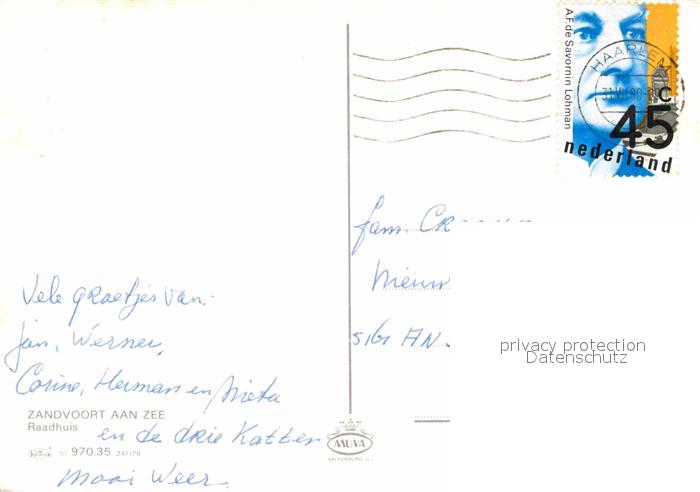 A.F. de Savornin Lohman
HAARLEM
45 c
nederland
fam. CR
Nieuw
5161 AN.
privacy protection
Datenschutz
Vele groetjes van:
Jan, Werner,
Corine, Herman en Nieta
ZANDVOORT AAN ZEE
Raadhuis
en de drie Katten
51 970.35 241178
MUVA
VALKENBURG
Mooi Weer.